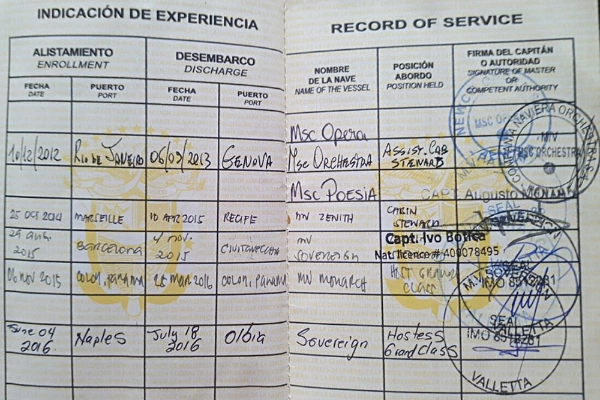 INDICACIÓN DE EXPERIENCIA
RECORD OF SERVICE
ALISTAMIENTO
ENROLLMENT
DESEMBARCO
DISCHARGE
FECHA
DATE
PUERTO
PORT
FECHA
DATE
PUERTO
PORT
NOMBRE
DE LA NAVE
NAME OF THE VESSEL
POSICIÓN
ABORDO
POSITION HELD
FIRMA DEL CAPITÁN
O AUTORIDAD
SIGNATURE OF MASTER
OR
COMPETENT AUTHORITY
Msc Opera
10/12/2012 Rio de Janeiro 06/09/2013 GENOVA Msc ORCHESTRA ASSIST. CAB STEWARD
Msc Poesia
25 OCT 2014 MARSEILLE 10 APR 2015 RECIFE MV ZENITH CABIN STEWARD
29 aug. 2015 Barcelona 4 nov. 2015 CIVITAVECCHIA MV SOVEREIGN
06 NOV 2015 COLON, PANAMA 25 MAR 2016 COLON, PANAMA MV MONARCH HOST GRAND CLASS
June 04 2016 Naples July 18 2016 Olbia Sovereign Hostess Grand Class
MSC ORCHESTRA
NAVIERA ORCHESTRA
M/V
CAPT. Augusto
SEAL
Capt. Ivo Botica
Nat. licence # 400078495
SOVEREIGN
SEAL
VALLETTA
VALLETTA